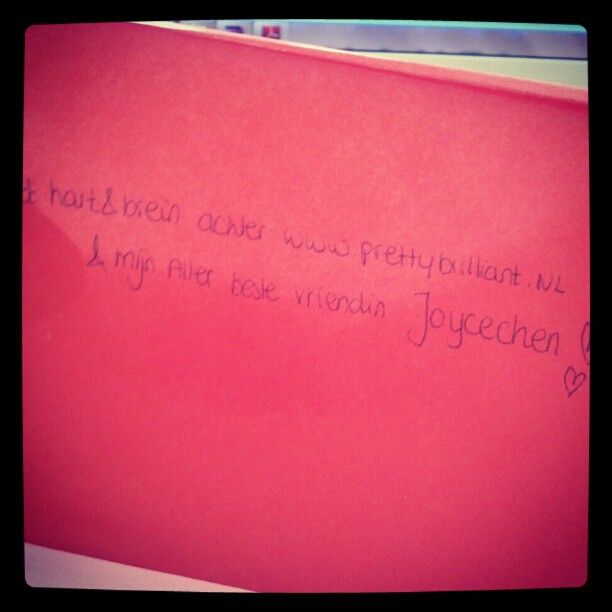 & hart & brein achter www.prettybrilliant.NL
& mijn Aller beste vriendin Joycechen